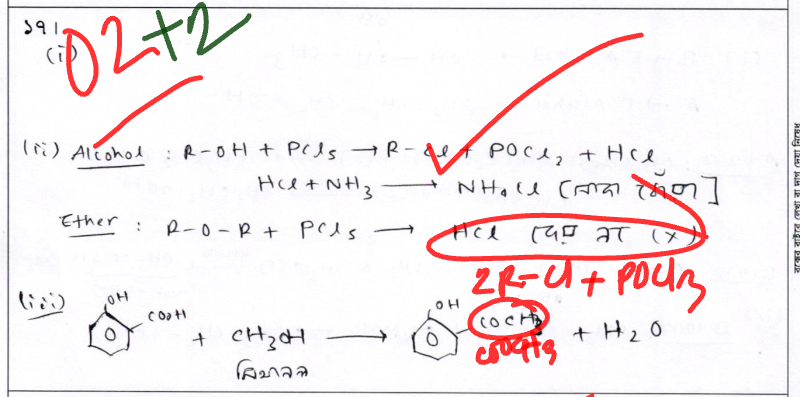 ১৭।
(i)
02+2
(ii) Alcohol : R-OH + PCl5 → R-Cl + POCl2 + HCl
HCl + NH3 → NH4Cl [সাদা ধোঁয়া]
Ether : R-O-R + PCl5 → HCl দেয় না (X)
2R-Cl + POCl3
(iii) OH COOH + CH3OH → OH COCH3 + H2O
COOCH3
মিথানল